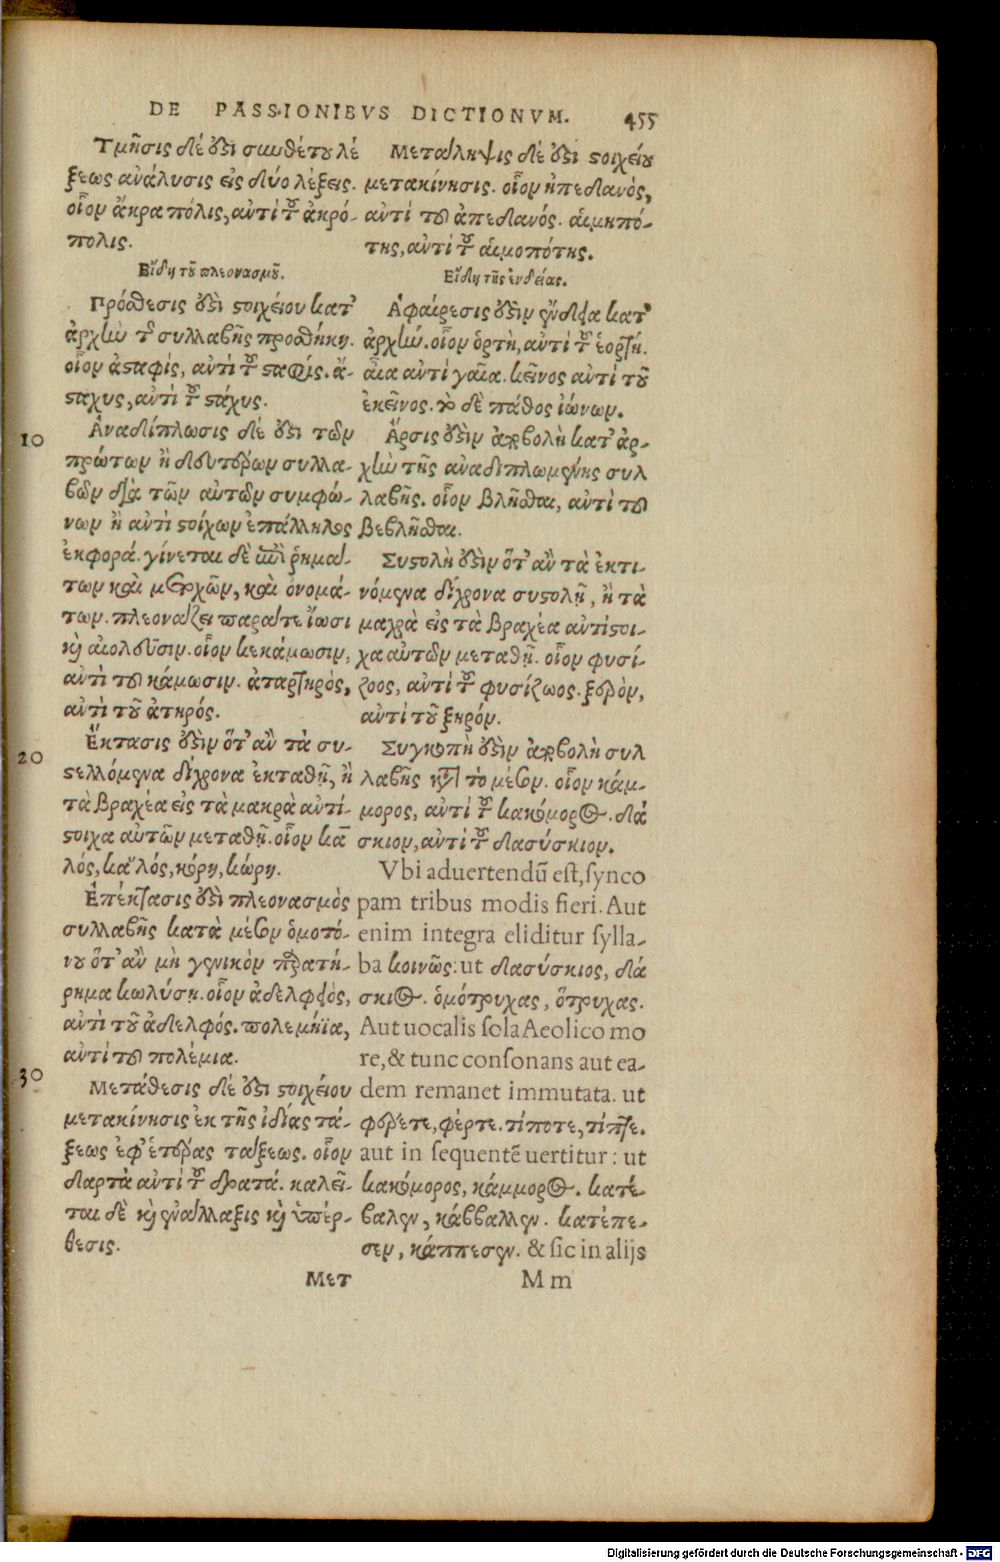 DE PASSIONIBVS DICTIONVM. 455
Τμῆσις δέ ὅτι συνθέτου λέ
ξεως ἀνάλυσις εἰς δύο λέξεις.
οἷον ἄκρα πόλις, ἀντὶ τοῦ ἀκρό-
πολις.
Εἴδη τοῦ πλεονασμοῦ.
Πρόσθεσις ὅτὶ στοιχείου κατ'
ἀρχὴν τῆς συλλαβῆς προσθήκη.
οἷον ἀσταφίς, ἀντὶ τοῦ σταφίς. ἄ-
σταχυς, ἀντὶ τοῦ στάχυς.
10
Ἀναδίπλωσις δέ ὅτι τῶν
πρώτων ἢ δευτέρων συλλα-
βῶν διὰ τῶν αὐτῶν συμφώ-
νων ἢ ἀντιστοίχων ἐπάλληλος
ἐκφορά. γίνεται δὲ ἐπὶ ῥημά-
των καὶ μετοχῶν, καὶ ὀνομά-
των. πλεονάζει παρά τε ἴωσι
καὶ αἰολεῦσιν. οἷον κεκάμωσιν,
ἀντὶ τοῦ κάμωσιν. ἀταρτηρὸς,
ἀντὶ τοῦ ἀτηρός.
20
Ἔκτασις ὅτὶν ὅτ' ἂν τὰ συ-
στελλόμενα δίχρονα ἐκταθῇ, ἢ
τὰ βραχέα εἰς τὰ μακρὰ ἀντί-
στοιχα αὐτῶν μεταθῇ. οἷον κα
λός, καλός, κόρη, κώρη.
Ἐπέκτασις ὅτὶ πλεονασμὸς
συλλαβῆς κατὰ μέσον ὁμοτό-
νου ὅτ' ἂν μὴ γενικὸν παρατή-
ρημα κωλύση. οἷον ἀδελφεὸς,
ἀντὶ τοῦ ἀδελφός. πολεμήϊα,
ἀντὶ τοῦ πολέμια.
30
Μετάθεσις δέ ὅτι στοιχείου
μετακίνησις ἐκ τῆς ἰδίας τά-
ξεως ἐφ' ἑτέρας τάξεως. οἷον
δαρτὰ ἀντὶ τοῦ δρατά. καλεῖ-
ται δὲ καὶ ἐνάλλαξις καὶ ὑπέρ-
θεσις.
Μετ
Μετάληψις δέ ὅτι στοιχείου
μετακίνησις. οἷον ἠπεδανὸς,
ἀντὶ τοῦ ἀπεδανός. αἱμηπό-
της, ἀντὶ τοῦ αἱμοπότης.
Εἴδη τῆς ἐνδείας.
Ἀφαίρεσις ὅτὶν ἔνδεια κατ'
ἀρχήν. οἷον ὁρτὴ, ἀντὶ τοῦ ἑορτή.
αἶα ἀντὶ γαῖα. κεῖνος ἀντὶ τοῦ
ἐκεῖνος. τὸ δὲ πάθος ἰώνων.
Ἄρσις ὅτὶν ἀποβολὴ κατ' ἀρ-
χὴν τῆς ἀναδιπλωμένης συλ
λαβῆς. οἷον βλῆσθαι, ἀντὶ τοῦ
βεβλῆσθαι.
Συστολὴ ὅτὶν ὅτ' ἂν τὰ ἐκτι-
νόμενα δίχρονα συστολῇ, ἢ τὰ
μακρὰ εἰς τὰ βραχέα ἀντίστοι-
χα αὐτῶν μεταθῇ. οἷον φυσί-
ζοος, ἀντὶ τοῦ φυσίζωος. ξερὸν,
ἀντὶ τοῦ ξηρόν.
Συγκοπὴ ὅτὶν ἀποβολὴ συλ
λαβῆς κατὰ τὸ μέσον. οἷον κάμ-
μορος, ἀντὶ τοῦ κακόμορος. δά
σκιον, ἀντὶ τοῦ δασύσκιον.
Vbi aduertendũ est, synco
pam tribus modis fieri. Aut
enim integra eliditur sylla-
ba κοινῶς: ut δασύσκιος, δά
σκιος. ὁμότριχας, ὅτριχας.
Aut uocalis sola Aeolico mo
re, & tunc consonans aut ea-
dem remanet immutata. ut
φέρετε, φέρτε. τίποτε, τίπτε.
aut in sequentẽ uertitur: ut
κακόμορος, κάμμορος. κατέ-
βαλεν, κάββαλλεν. κατέπε-
σεν, κάππεσεν. & sic in alijs
M m
Digitalisierung gefördert durch die Deutsche Forschungsgemeinschaft - DFG